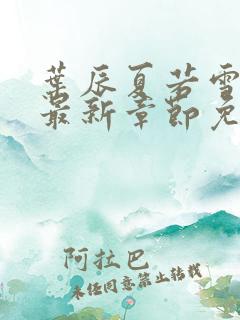 葉辰夏若雪
最新章節免
阿拉巴
未经同意禁止转载